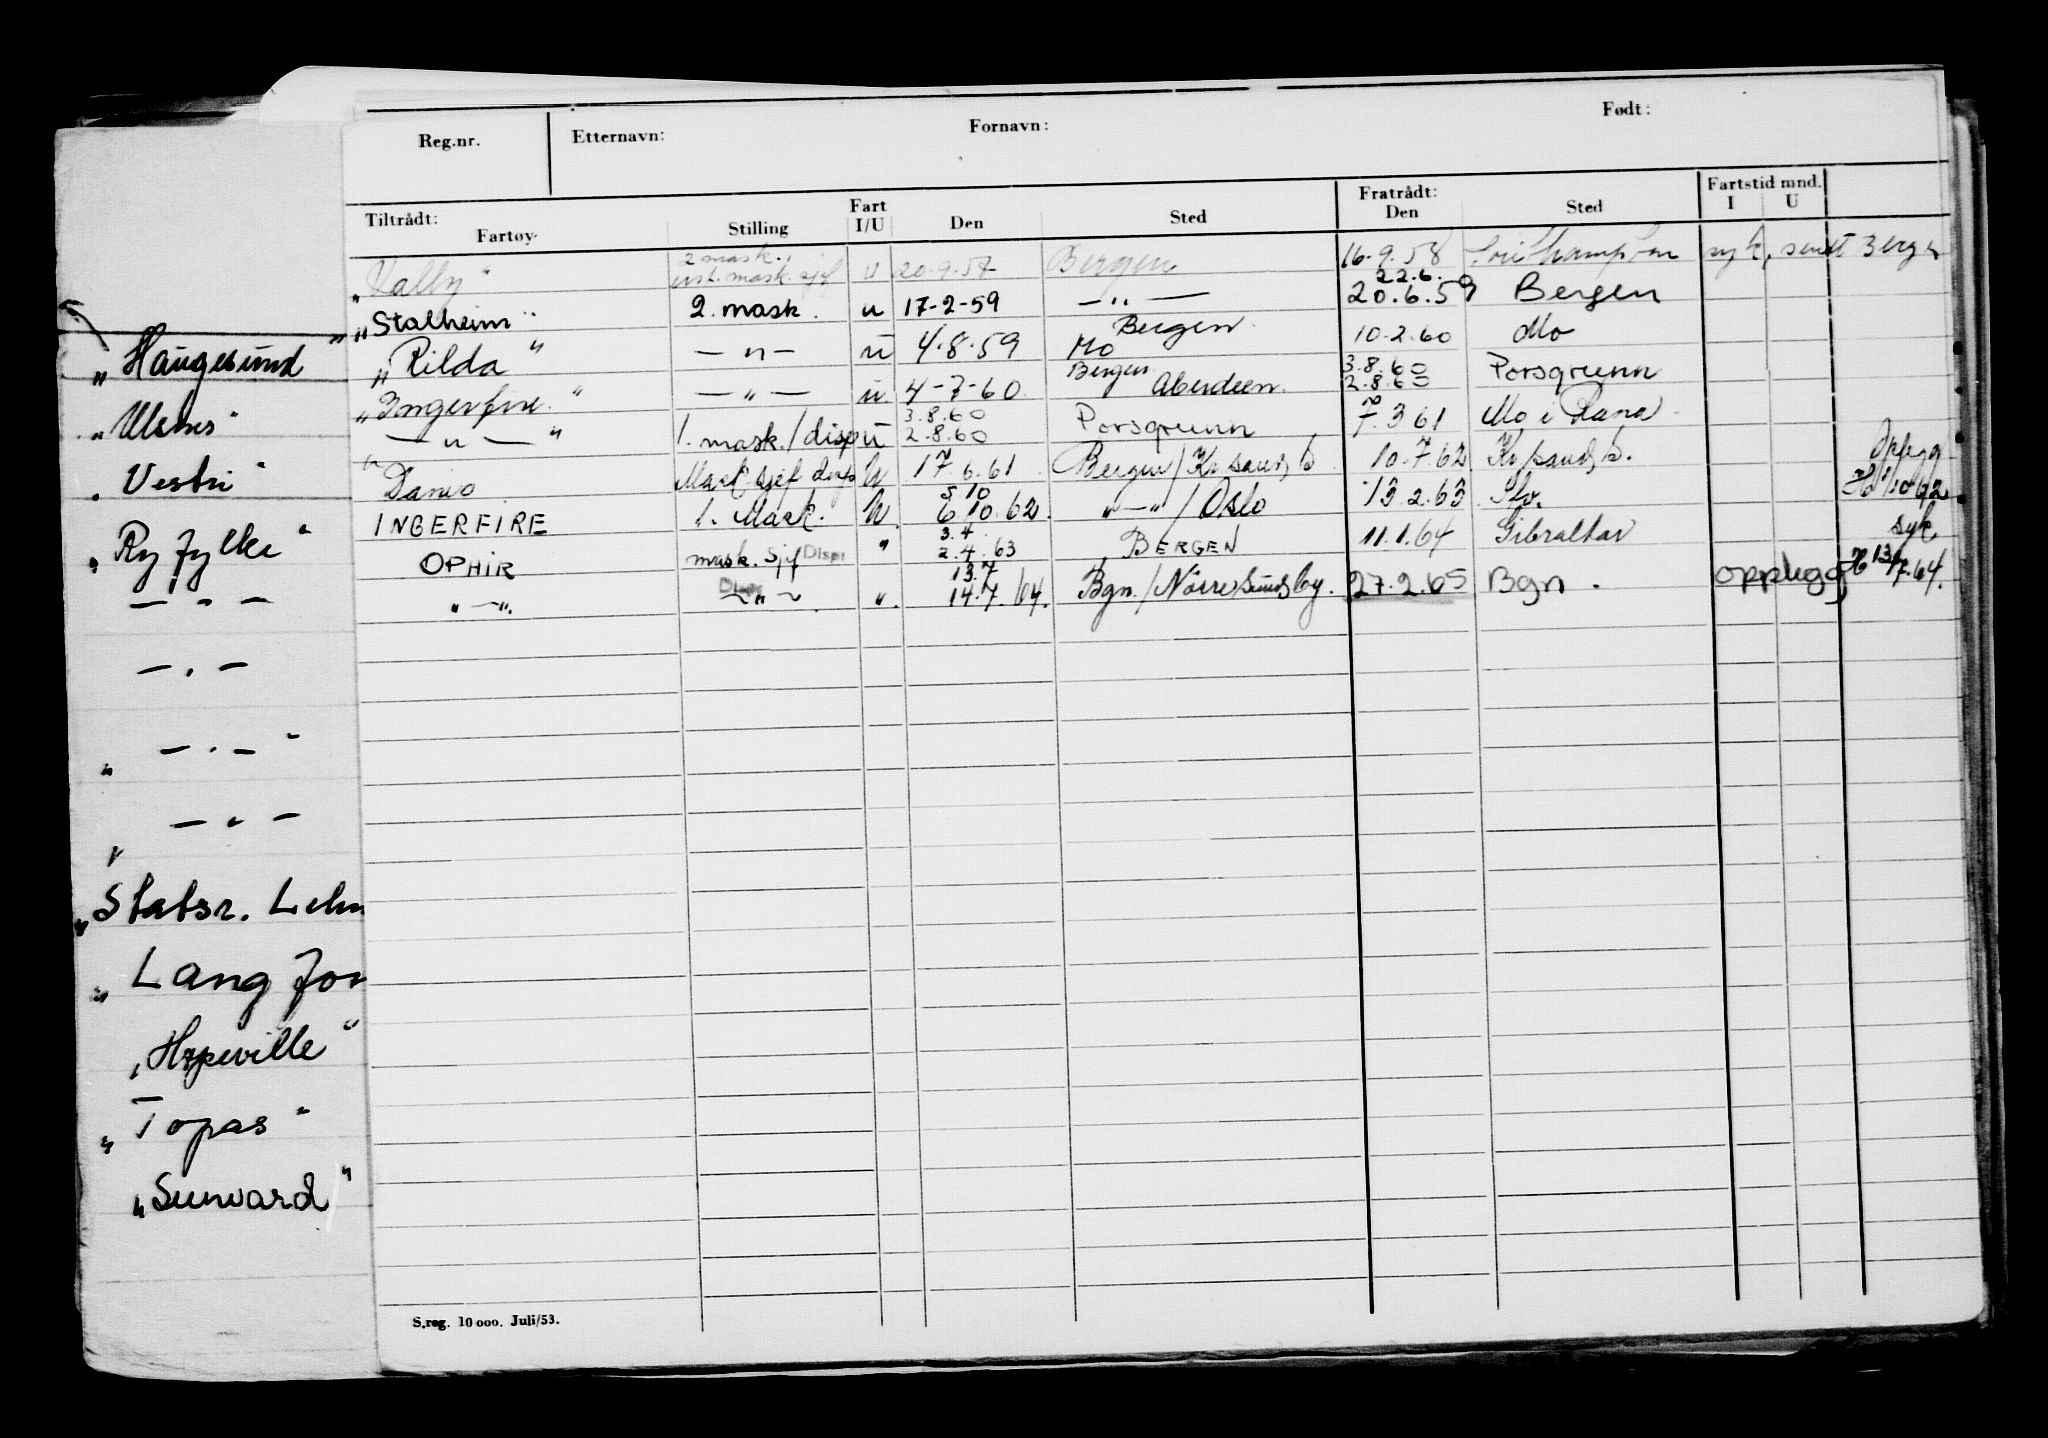 Reg.nr. Etternavn: Fornavn: Født:
Tiltrådt: Fartøy Stilling Fart I/U Den Sted Fratrådt: Den Sted Fartstid mnd. I U
2 mask.
„Vally" mask. sjef u 20.9.57 Bergen 16.9.58 Southampton syk, sendt Bergen
22.6.
„Stalheim" 2. mask. u 17-2-59 — „ — 20.6.59 Bergen
Bergen
„Rilda" — „ — u 4.8.59 Mo 10.2.60 Mo
Bergen 3.8.60
„Ingerfire" — „ — u 4-7-60 Aberdeen 2.8.60 Porsgrunn
3.8.60
— „ — " 1. mask./disp u 2.8.60 Porsgrunn 7.3 61 Mo i Rana
" Danio Mask sjef disp U 17.6.61 Bergen/Kr.sand S. 10.7.62 Kr.sand S. Opplegg
5 10
INGERFIRE 1. Mask. U. 6.10.62. „—"/Oslo 13.2.63 Slo.
3.4
OPHIR mask. Sjef Disp " 2.4.63 BERGEN 11.1.64 Gibraltar syk
13.7
„—". Disp ~"~ ". 14.7.64. Bgn./Nörresundby. 27.2.65 Bgn. opplegg 13/7.64.
„Haugesund"
„Ulsnes"
„Vestri"
„Ryfylke"
— " —
— . —
„ — . — "
„ — . —
„Statsr. Lehm
„Lang Jon
„Hopeville"
„Topas"
„Sunvard"
S.reg. 10 000. Juli/53.